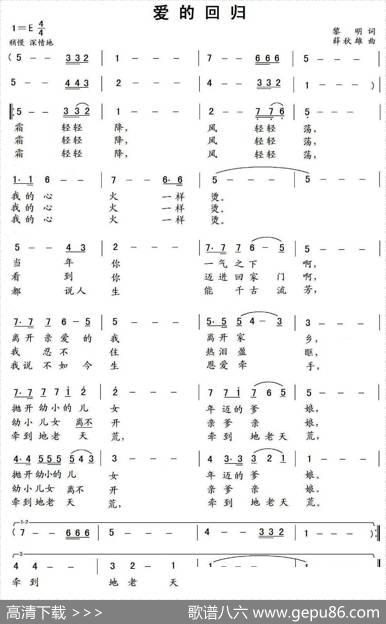 爱的回归
1=E 4/4
稍慢 深情地
黎明词
薛秋雄曲
(5 - - 332 | 1 - - - | 7 - - 666 | 5 - - -
5 - - 443 | 2 - - - | 5 - - 332 | 1 - - -)
5 - - 332 | 1 - - - | 2 - - 776 | 5 - - -
霜 轻轻 降, 风 轻轻 荡,
霜 轻轻 降, 风 轻轻 荡,
霜 轻轻 降, 风 轻轻 荡,
1·1 6 - - | 7 - - 6·6 | 5 - - - | 5 - - -
我的心 火 一样 烫。
我的心 火 一样 烫。
我的心 火 一样 烫。
5 - - 43 | 2 - - - | 7·7 76 - 5 | 5 - - -
当年你 一气之下 啊,
看到你 迈进回家门 啊,
都说人生 能千古流 芳,
5·5 55 4 - | 3 - - -
离开亲爱的我 离开家 乡,
我忍不住 热泪盈 眶,
我说不如今生 恩爱牵 手,
抛开幼小的儿女 年迈的爹 娘。
幼小儿女离不开 亲爹亲 娘。
牵到地老天荒, 牵到地老天 荒。
抛开幼小的儿女 年迈的爹 娘。
幼小儿女离不开 亲爹亲 娘。
牵到地老天荒, 牵到地老天 荒。
1·2
(7 - - 666 | 5 - - - | 4 - - 332 | 1 - - -)
3
4 4 - - | 3 - 2 - | 1 - - - | 1 - - -
牵到 地老天
高清下载 >>>
歌谱八六 www.gepu86.com